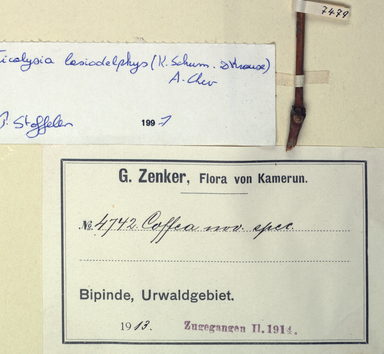 7479
Tricalysia lasiodelphys (K. Schum. & Krause)
A. Chev
P. Stoffelen 1991
G. Zenker, Flora von Kamerun.
№ 4742. Coffea nov. spec.
Bipinde, Urwaldgebiet.
1913. Zugegangen II. 1914.